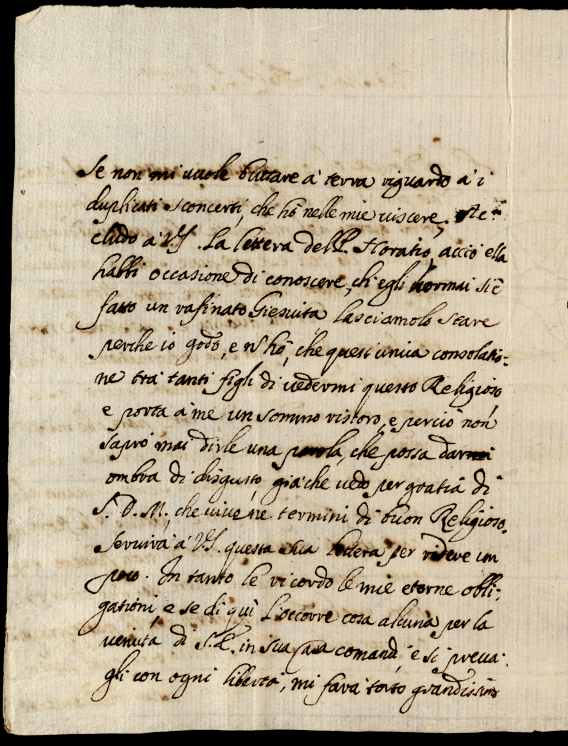 Se non mi vuole buttare à terra riguardo à i
duplicati sconcerti, che hò nelle mie viscere.
cludo à V.S. La lettera dell P. Horatio, acciò ella
habbi occasione di conoscere, ch'egli hormai si è
fatto un rafinato Giesuita lasciamolo stare
perche io godo, e n' hò, che quest'unica consolatio-
ne trà tanti figli di vedermi questo Religioso
e porta à me un sommo ristoro, e perciò non
saprò mai dirle una parola, che possa darmi
ombra di disgusto, già che vedo per gratia di
S. D. M., che vive ne termini di buon Religioso.
Servirà à V.S. questa sua lettera per ridere un
poco. In tanto le ricordo le mie eterne obli-
gationi, e se di quì L'occorre cosa alcuna per la
venuta di S. E. in sua casa comandi, e si preva-
gli con ogni libertà, mi farà torto grandissimo